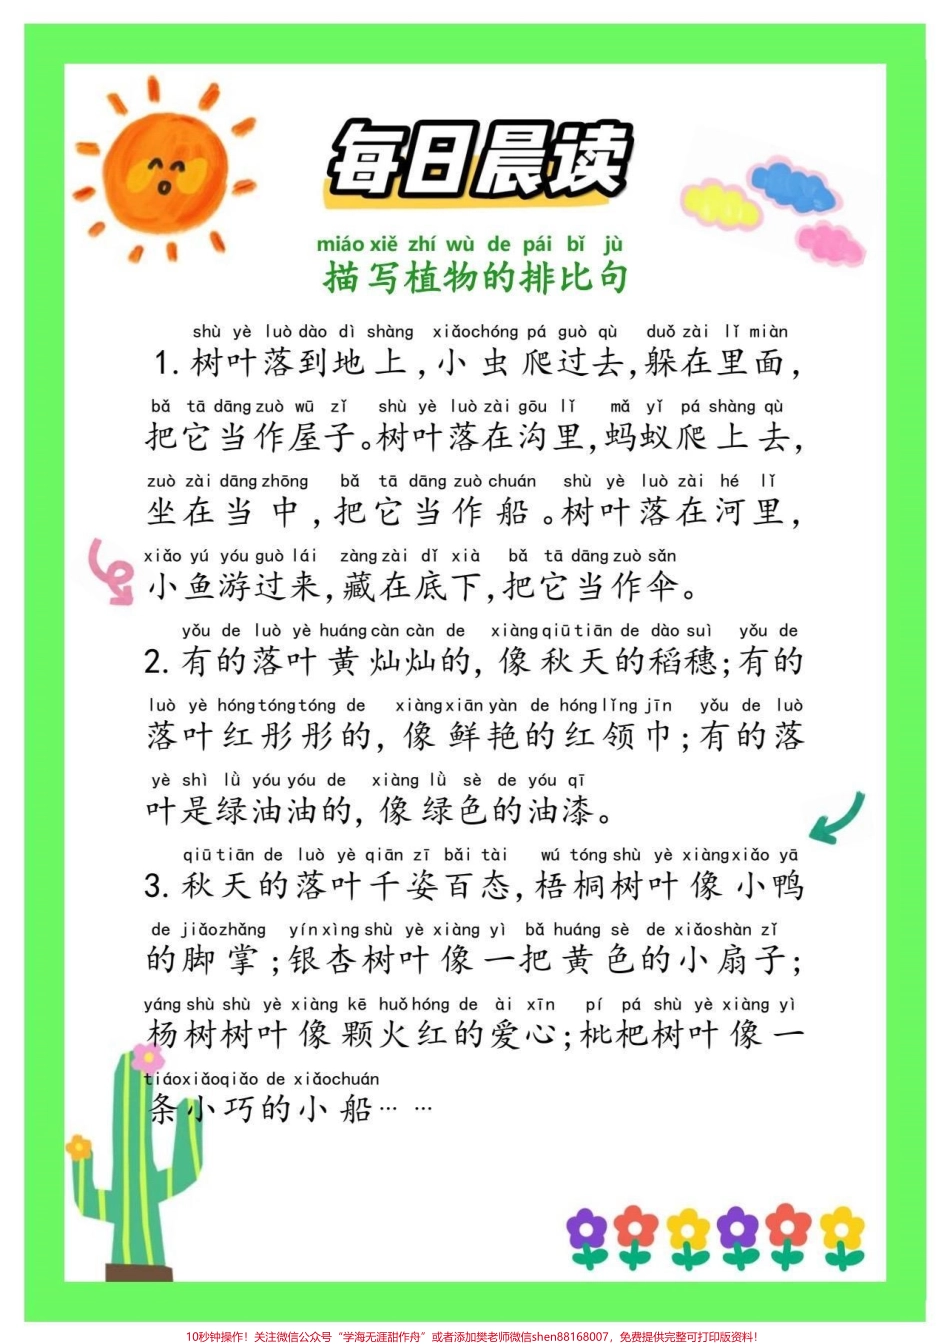 每日晨读
miáo xiě zhí wù de pái bǐ jù
描写植物的排比句
shù yè luò dào dì shàng xiǎochóng pá guò qù duǒ zài lǐ miàn
1.树叶落到地上,小虫爬过去,躲在里面,
bǎ tā dāng zuò wū zǐ shù yè luò zài gōu lǐ mǎ yǐ pá shàng qù
把它当作屋子。树叶落在沟里,蚂蚁爬上去,
zuò zài dāng zhōng bǎ tā dāng zuò chuán shù yè luò zài hé lǐ
坐在当中,把它当作船。树叶落在河里,
xiǎo yú yóu guò lái zàng zài dǐ xià bǎ tā dāng zuò sǎn
小鱼游过来,藏在底下,把它当作伞。
yǒu de luò yè huáng càn càn de xiàng qiū tiān de dào suì yǒu de
2.有的落叶黄灿灿的,像秋天的稻穗;有的
luò yè hóng tóng tóng de xiàng xiān yàn de hóng lǐng jīn yǒu de luò
落叶红彤彤的,像鲜艳的红领巾;有的落
yè shì lǜ yóu yóu de xiàng lǜ sè de yóu qī
叶是绿油油的,像绿色的油漆。
qiū tiān de luò yè qiān zī bǎi tài wú tóng shù yè xiàng xiǎo yā
3.秋天的落叶千姿百态,梧桐树叶像小鸭
de jiǎo zhǎng yín xìng shù yè xiàng yì bǎ huáng sè de xiǎo shàn zǐ
的脚掌;银杏树叶像一把黄色的小扇子;
yáng shù shù yè xiàng kē huǒ hóng de ài xīn pí pá shù yè xiàng yì
杨树树叶像颗火红的爱心;枇杷树叶像一
tiáo xiǎo qiǎo de xiǎo chuán
条小巧的小船……
10秒钟操作！关注微信公众号“学海无涯甜作舟”或者添加樊老师微信shen88168007，免费提供完整可打印版资料！